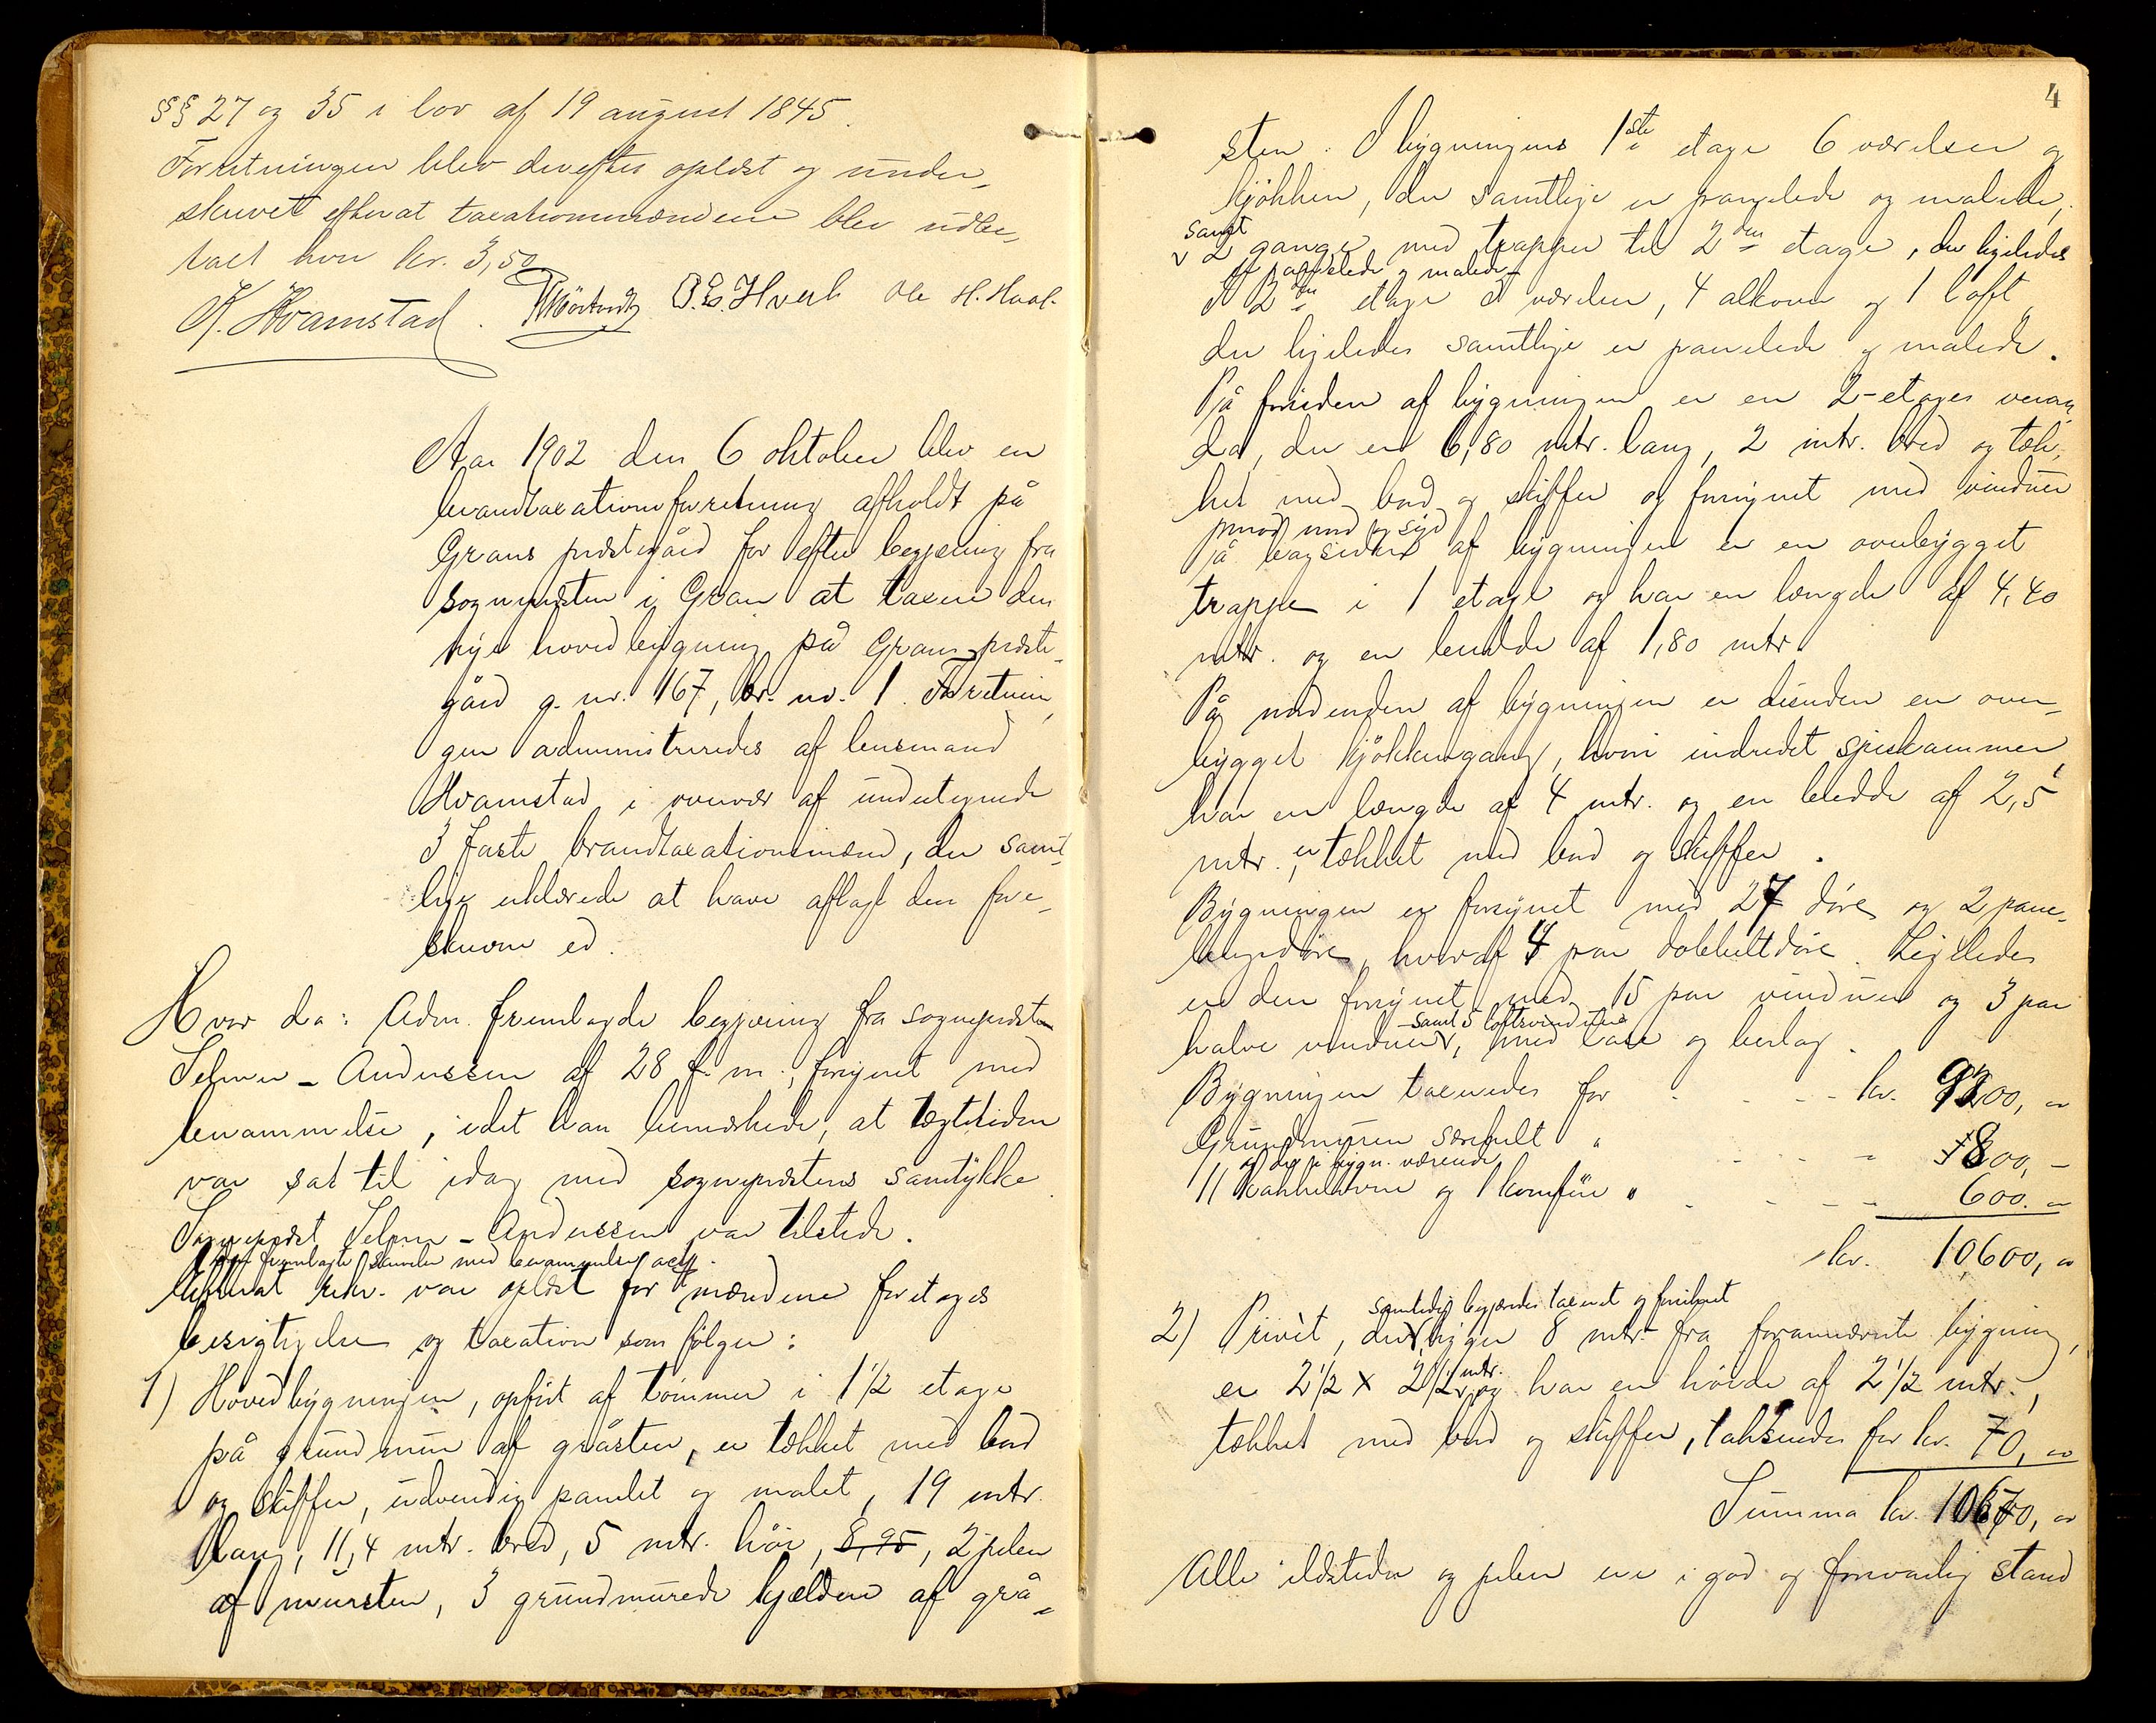 §§ 27 og 35 i lov af 19 august 1845.
Forretningen blev derefter oplæst og under-
skrevet efterat taxationsmændene blev udbe-
talt hver kr. 3,50
K. Hvamstad. O. L. Hvel Ole H. Hval.
Aar 1902 den 6 oktober blev en
brandtaxationsforretning afholdt på
Grans prestegård for efter begjæring fra
sognepresten i Gran at taxere den
nye hovedbygning på Grans preste-
gård g. nr. 167, br. nr. 1. Forretnin-
gen administreredes af lensmand
Hvamstad i overvær af undertegnede
3 faste brandtaxationsmænd, der samt-
lige erklærede at have aflagt den fore-
skrevne ed.
Hvor da: Adm. fremlagde begjæring fra sognepresten
Selmer-Anderssen af 28 f. m., forsynet med
berammelse, idet han bemærkede, at tægtetiden
var sat til idag med sogneprestens samtykke
Sogneprest Selmer-Anderssen var tilstede.
fremlagte skrivelse med berammelse
Efterat rekv. var oplæst for mændene foretoges
besigtigelse og taxation som følger:
1) Hovedbygningen, opført af tømmer i 1 1/2 etage
på grundmur af gråsten, er tækket med bord
og skiffer, udvendig panelet og malet, 19 mtr.
lang, 11,4 mtr. bred, 5 mtr. høi, 8,95, 2 piber
af mursten, 3 grundmurede kjeldere af grå-
4
sten. I bygningens 1ste etage 6 værelser og
kjøkken, der samtlige er panelede og malede,
samt
2 gange med trapper til 2den etage, der ligeledes
er panelede og malede
I 2den etage værelser, 4 alkover og 1 loft
der ligeledes samtlige er panelede og malede.
På forsiden af bygningen er en 2-etages veran-
da, der er 6,80 mtr. lang, 2 mtr. bred og tæk-
ket med bord og skiffer og forsynet med vinduer
mod nord og syd
På bagsiden af bygningen er en overbygget
trappe i 1 etage og har en længde af 4,40
mtr. og en bredde af 1,80 mtr.
På nordenden af bygningen er desuden en over-
bygget kjøkkengang, hvori indredet spiskammer,
har en længde af 4 mtr. og en bredde af 2,5
mtr., er tækket med bord og skiffer.
Bygningen er forsynet med 27 døre og 2 pane-
lingsdøre, hvoraf 4 par dobbeltdøre. Ligeledes
er den forsynet med 15 par vinduer og 3 par
samt 5 loftsvinduer
halve vinduer, med laase og beslag.
Bygningen taxeredes for - - - - kr. 9200,"
Grundmuren særskilt " - - - 800,-
af de i bygn. værende
11 kakkelovne og 1 komfur " - - - - 600."
kr. 10,600,"
samtidig begjæredes taxeret og forsikret
2) Privèt, der ligger 8 mtr. fra forannævnte bygning,
er 2 1/2 x 2 1/2 mtr. og har en høide af 2 1/2 mtr.,
tækket med bord og skiffer, takseredes for kr. 70,"
Summa kr. 10670,"
Alle ildsteder og piber ere i god og forsvarlig stand